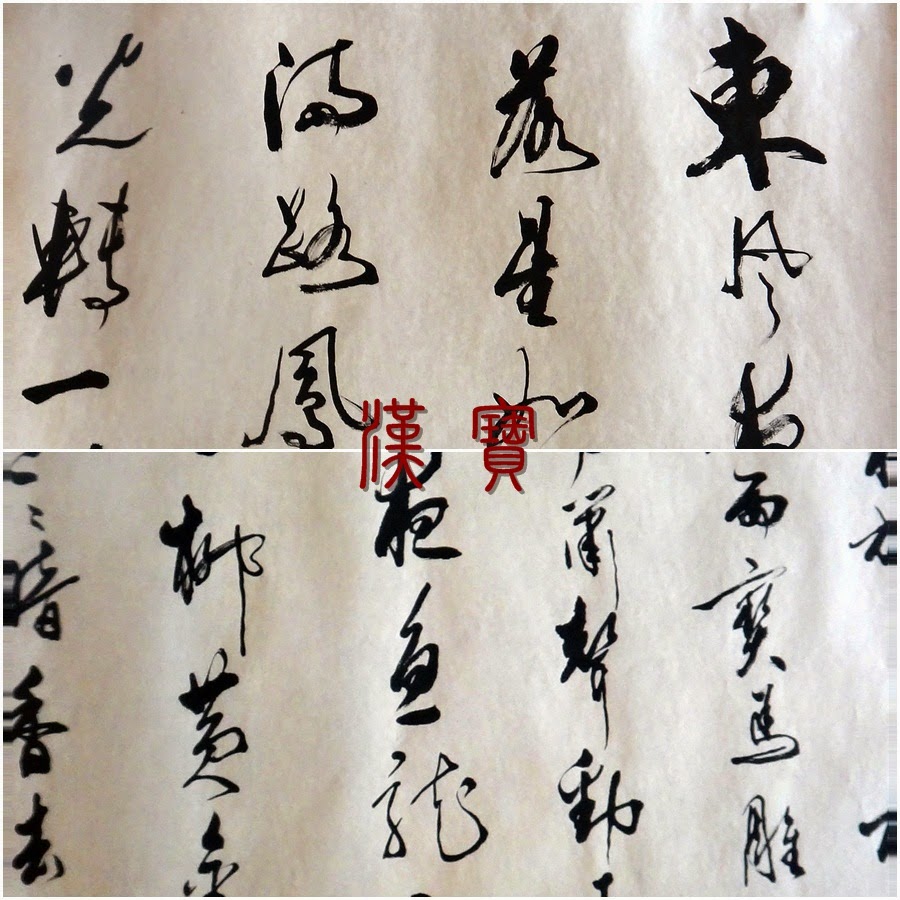 東風夜
落星如
滿路鳳
光轉一
漢寶
雨寶馬雕
簫聲動
夜魚龍
柳黃金
暗香去